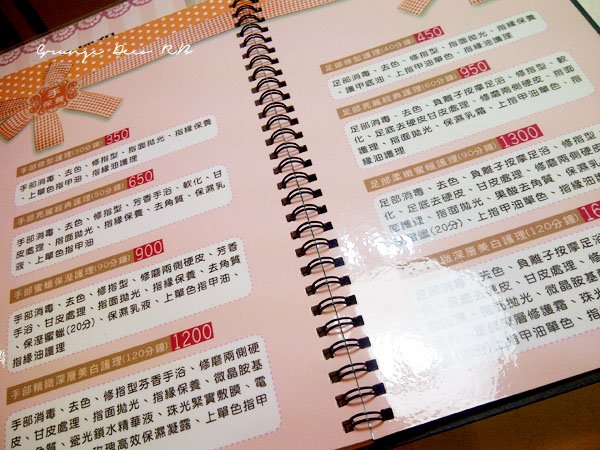 手
保養
手部修型護理(30分鐘) 350
手部消毒、去色、修指型、指面拋光、指緣保養
、上單色指甲油、指緣油護理
手部亮麗經典護理(50分鐘) 650
手部消毒、去色、修指型、芳香手浴、軟化、甘
皮處理、指面拋光、指緣保養、去角質、保濕乳
液、上單色指甲油
手部蜜蠟保溼護理(90分鐘) 900
手部消毒、去色、修指型、修磨兩側硬皮、芳香
手浴、甘皮處理、指面拋光、指緣保養、去角質
、保溼蜜蠟(20分)、保濕乳液、上單色指甲油、
指緣油護理
手部精緻深層美白護理(120分鐘) 1200
手部消毒、去色、修指型芳香手浴、修磨兩側硬
皮、甘皮處理、指面拋光、指緣保養、微晶胺基
角質、瓷光鎖水精華液、珠光緊實敷膜、
玫瑰高效保濕凝露、上單色指甲
足部修型護理(40分鐘) 450
足部消毒、去色、修指型、指面拋光、指緣保養
、護甲底油、上指甲油單色、指緣油護理
足部亮麗經典護理(60分鐘) 950
足部消毒、去色、負離子按摩足浴、修指型、軟
化、足底去硬皮甘皮處理、修磨兩側硬皮、指面
拋光、指緣保養、保濕乳霜、上指甲油單色、指
緣油護理
足部柔嫩蜜蠟護理(90分鐘) 1300
足部消毒、去色、負離子按摩足浴、修指型、軟
化、足底去硬皮、甘皮處理、修磨兩側硬皮
護理、指面拋光、果酸去角質、保濕
(20分)、上指甲油單色、指緣油
緻深層美白護理(120分鐘) 16
足部消毒、去色、負離子按摩足浴
、足底去硬皮、甘皮處理、修
、指面拋光、微晶胺基
深層修護霜、珠光
指甲油單色、指